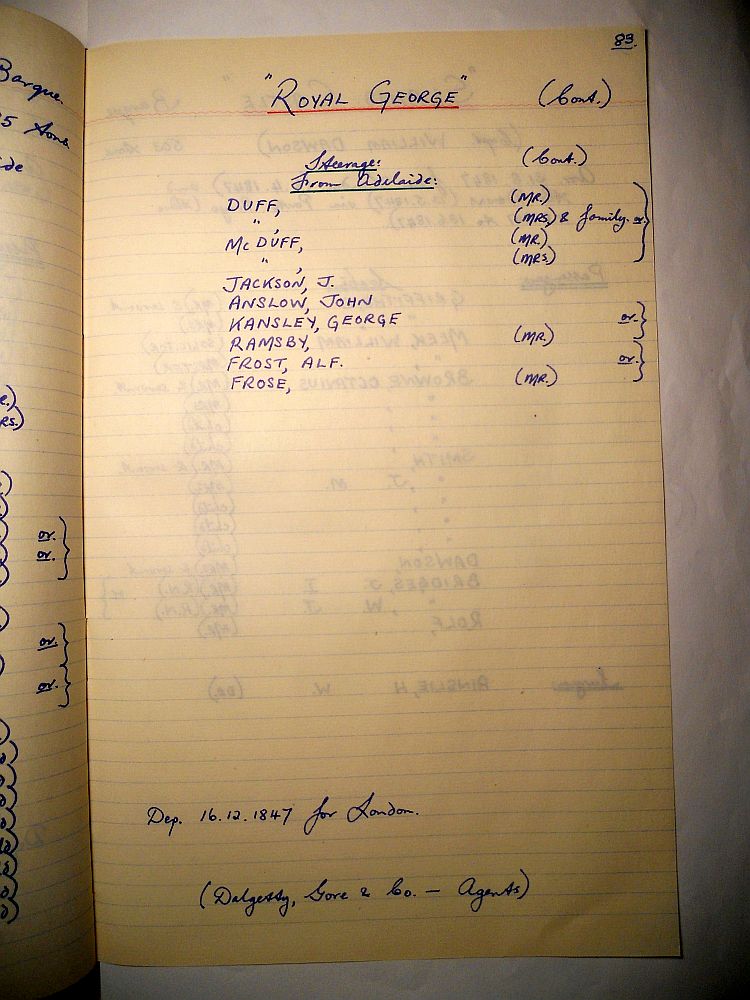 Barque.
83.
"ROYAL GEORGE" (Cont.)
Steerage: (Cont.)
From Adelaide:
DUFF, (MR.)
" , (MRS) & family. or.
McDUFF, (MR.)
" , (MRS.)
JACKSON, J.
ANSLOW, JOHN
KANSLEY, GEORGE or.
RAMSBY, (MR.)
FROST, ALF. or.
FROSE, (MR.)
or.
or.
or.
or.
Dep. 16.12.1847 for London.
(Dalgetty, Gore & Co. — Agents)